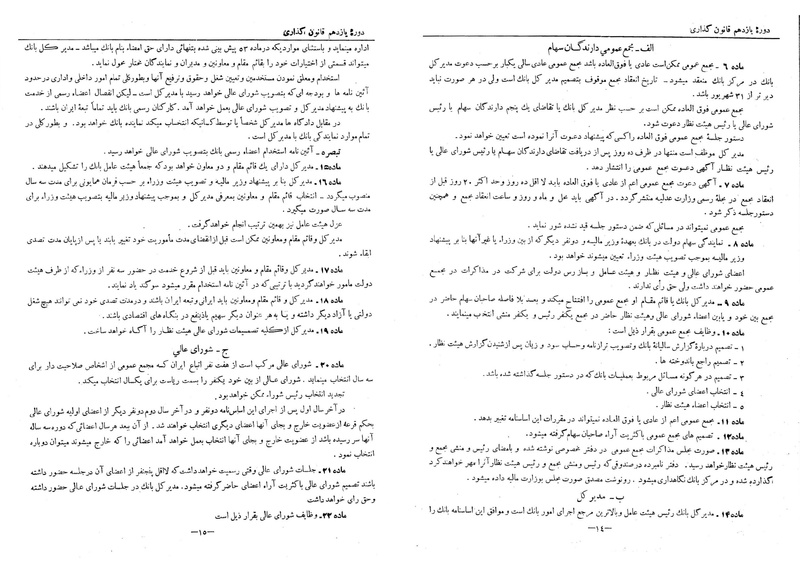 دورهٔ یازدهم قانون گذاری
الف - مجمع عمومی دارندگان سهام
ماده ۶ - مجمع عمومی ممکن است عادی یا فوق‌العاده باشد مجمع عمومی عادی سالی یکبار برحسب دعوت مدیرکل
بانک در مرکز بانک منعقد میشود - تاریخ انعقاد مجمع موقوف بتصمیم مدیر کل است ولی در هر صورت نباید
دیر تر از ۳۱ شهریور باشد .
مجمع عمومی فوق العاده ممکن است بر حسب نظر مدیر کل بانک یا تقاضای یک پنجم دارندگان سهام یا رئیس
شورای عالی یا رئیس هیئت نظار دعوت شود.
دستور جلسهٔ مجمع عمومی فوق العاده راکسی که پیشنهاد دعوت آنرا نموده است تعیین خواهد نمود .
مدیر کل موظف است منتها در ظرف ده روز پس از دریافت تقاضای دارندگان سهام یا رئیس شورای عالی یا
رئیس هیئت نظار آگهی دعوت مجمع عمومی را انتشار دهد .
ماده ۷ - آگهی دعوت مجمع عمومی اعم از عادی یا فوق العاده باید لااقل ده روز وحد اکثر ۲۰ روز قبل از
انعقاد مجمع در مجلهٔ رسمی وزارت عدلیه منتشر گردد . در آگهی باید محل و روز و ساعت انعقاد مجمع و همچنین
دستور جلسه ذکر شود .
مجمع عمومی نمیتواند در مسائلی که ضمن دستور جلسه قید نشده شور نماید .
ماده ۸ - نمایندگی سهام دولت در بانک بعهدهٔ وزیر مالیه و دونفر دیگر که از بین وزراء یا غیر آنها بنا بر پیشنهاد
وزیر مالیه بموجب تصویب هیئت وزراء تعیین میشوند خواهد بود .
اعضای شورای عالی و هیئت نظار و هیئت عامل و بازرس دولت برای شرکت در مذاکرات در مجمع
عمومی حضور خواهند داشت ولی حق رأی ندارند .
ماده ۹ - مدیر کل بانک یا قائم مقام او مجمع عمومی را افتتاح میکند و بعد بلا فاصله صاحبان سهام حاضر در
مجمع بین خود و یابین اعضاء شورای عالی وهیئت نظار حاضر در مجمع یکنفر رئیس و یکنفر منشی انتخاب مینمایند .
ماده ۱۰ - وظایف مجمع عمومی بقرار ذیل است :
۱ - تصمیم دربارهٔ گزارش سالیانهٔ بانک وتصویب ترازنامه وحساب سود و زیان پس ازشنیدن گزارش هیئت نظار .
۲ - تصمیم راجع باندوخته ها .
۳ - تصمیم در هرگونه مسائل مربوط بعملیات بانک که در دستور جلسه گذاشته شده باشد .
۴ - انتخاب اعضای شورای عالی .
۵ - انتخاب اعضاء هیئت نظار .
ماده ۱۱ - مجمع عمومی اعم از عادی یا فوق العاده نمیتواند در مقررات این اساسنامه تغییر بدهد .
ماده۱۲ - تصمیم های مجمع عمومی باکثریت آراء صاحبان سهام گرفته میشود.
ماده ۱۳ - صورت مجلس مذاکرات مجمع عمومی در دفتر خصوصی نوشته شده و بامضای رئیس و منشی مجمع و
رئیس هیئت نظار خواهد رسید . دفتر نامبرده درصندوقی که رئیس و منشی مجمع و رئیس هیئت نظار آنرا مهر خواهند کرد
گذارده شده و در مرکز بانک نگاهداری میشود . رونوشت مصدق صورت مجلس بوزارت مالیه داده میشود .
ب - مدیر کل
ماده ۱۴ - مدیر کل بانک رئیس هیئت عامل وبالاترین مرجع اجرای امور بانک است و موافق این اساسنامه بانک را
—۱٤—
دورهٔ یازدهم قانون گذاری
اداره مینماید و باستثنای مواردیکه درماده ۵۳ پیش بینی شده بتنهائی دارای حق امضاء بنام بانک میباشد - مدیر کل بانک
میتواند قسمتی از اختیارات خود را بقائم مقام و معاونین و مدیران و نمایندگان مختار محول نماید .
استخدام ومعلق نمودن مستخدمین وتعیین شغل وحقوق وترفیع آنها وبطورکلی تمام امور داخلی واداری درحدود
آئین نامه ها و بودجه ای که بتصویب شورای عالی خواهد رسید با مدیر کل است - لیکن انفصال اعضاء رسمی از خدمت
بانک به پیشنهاد مدیر کل و تصویب شورای عالی بعمل خواهد آمد . کارکنان رسمی بانک باید تماماً تبعهٔ ایران باشند .
در مقابل دادگاه ها مدیر کل شخصاً یا توسط کسانیکه انتخاب میکند نماینده بانک خواهد بود . و بطور کلی در
تمام موارد نمایندگی بانک با مدیر کل است .
تبصره - آئین نامه استخدام اعضاء رسمی بانک بتصویب شورای عالی خواهد رسید .
ماده۱۵ - مدیر کل دارای یک قائم مقام و دو معاون خواهد بود که جمعاً هیئت عامل بانک را تشکیل میدهند .
ماده ۱۶ - مدیر کل بنا بر پیشنهاد وزیر مالیه و تصویب هیئت وزراء بر حسب فرمان همایونی برای مدت سه سال
منصوب میگردد - انتخاب قائم مقام و معاونین بمعرفی مدیر کل و بموجب پیشنهاد وزیر مالیه بتصویب هیئت وزراء برای
مدت سه سال صورت میگیرد .
عزل هیئت عامل نیز بهمین ترتیب انجام خواهدگرفت.
مدیر کل وقائم مقام و معاونین ممکن است قبل از انقضای مدت مأموریت خود تغییر یابند یا پس از پایان مدت تصدی
ابقاء شوند .
ماده ۱۷ - مدیر کل وقائم مقام و معاونین باید قبل از شروع خدمت در حضور سه نفر از وزراء که از طرف هیئت
دولت مامور خواهند گردید با ترتیبی که در آئین نامه استخدام مقرر میشود سوگند یاد نمایند .
ماده ۱۸ - مدیر کل و قائم مقام ومعاونین باید ایرانی وتبعه ایران باشند و درمدت تصدی خود نمی توانند هیچ شغل
دولتی یا آزاد دیگر داشته و یا به هر عنوان دیگر سهیم یا ذینفع در بنگاه های اقتصادی باشند .
ماده ۱۹ - مدیر کل ازکلیه تصمیمات شورای عالی هیئت نظار را آگاه خواهد ساخت .
ج - شورای عالی
ماده ۲۰ - شورای عالی مرکب است از هفت نفر اتباع ایران که مجمع عمومی از اشخاص صلاحیت دار برای
سه سال انتخاب مینماید . شورای عالی از بین خود یکنفر را بسمت ریاست برای یکسال انتخاب میکند .
تجدید انتخاب رئیس شوراء ممکن خواهد بود .
درآخر سال اول پس از اجرای این اساس‌نامه دونفر و درآخر سال دوم دونفر دیگر از اعضای اولیه شورای عالی
بحکم قرعه ازعضویت خارج و بجای آنها اعضای دیگری انتخاب خواهند شد . از آن بعد هر سال اعضائی که دوره سه ساله
آنها سر رسیده باشد از عضویت خارج و بجای آنها انتخاب بعمل خواهد آمد اعضائی را که خارج میشوند میتوان دوباره
انتخاب نمود .
ماده ۲۱ - جلسات شورای عالی وقتی رسمیت خواهدداشت که لااقل پنجنفر از اعضای آن درجلسه حضور داشته
باشند تصمیم شورای عالی باکثریت آراء اعضای حاضر گرفته میشود. مدیر کل بانک در جلسات شورای عالی حضور داشته
وحق رای خواهد داشت
ماده ۲۲ - وظایف شورای عالی بقرار ذیل است
—۱۵—